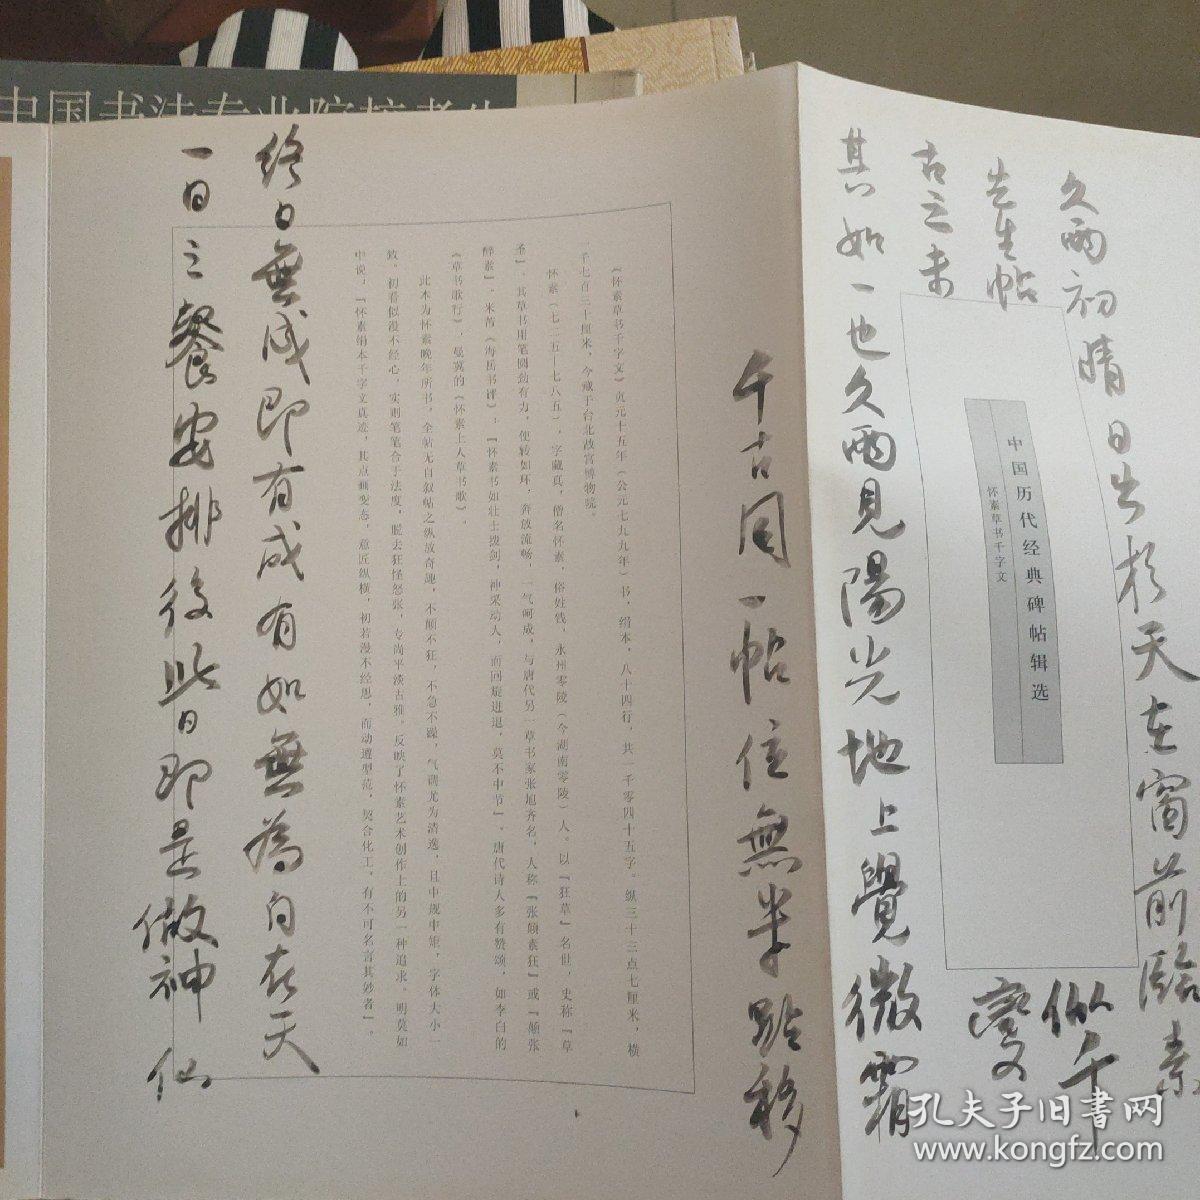 中国书法专业院校考生
久雨初晴日出於天在窗前臨素
先生帖
似午
古之未
變
其如一也久雨見陽光地上覺微霜
千古同一帖位無半點移
終日無成即有成有如無為自在天
一日之餐安排後此日即是做神仙
中国历代经典碑帖辑选
怀素草书千字文
《怀素草书千字文》贞元十五年（公元七九九年）书，绢本，八十四行，共一千零四十五字。纵三十三点七厘米，横
千七百三十厘米，今藏于台北故宫博物院。
怀素（七二五—七八五），字藏真，僧名怀素，俗姓钱，永州零陵（今湖南零陵）人。以「狂草」名世，史称「草
圣」，其草书用笔圆劲有力，使转如环，奔放流畅，一气呵成，与唐代另一草书家张旭齐名，人称「张颠素狂」或「颠张
醉素」。米芾《海岳书评》：「怀素书如壮士拨剑，神采动人，而回旋进退，莫不中节」。唐代诗人多有赞颂，如李白的
《草书歌行》，曼冀的《怀素上人草书歌》。
此本为怀素晚年所书，全帖无自叙帖之纵放奇趣，不颠不狂，不急不躁，气调尤为清逸，且中规中矩，字体大小一
致。初看似漫不经心，实则笔笔合于法度，脱去狂怪怒张，专尚平淡古雅，反映了怀素艺术创作上的另一种追求。明莫如
中说：「怀素绢本千字文真迹，其点画变态，意匠纵横，初若漫不经思，而动遵型范，契合化工，有不可名言其妙者」。
孔夫子旧书网
www.kongfz.com